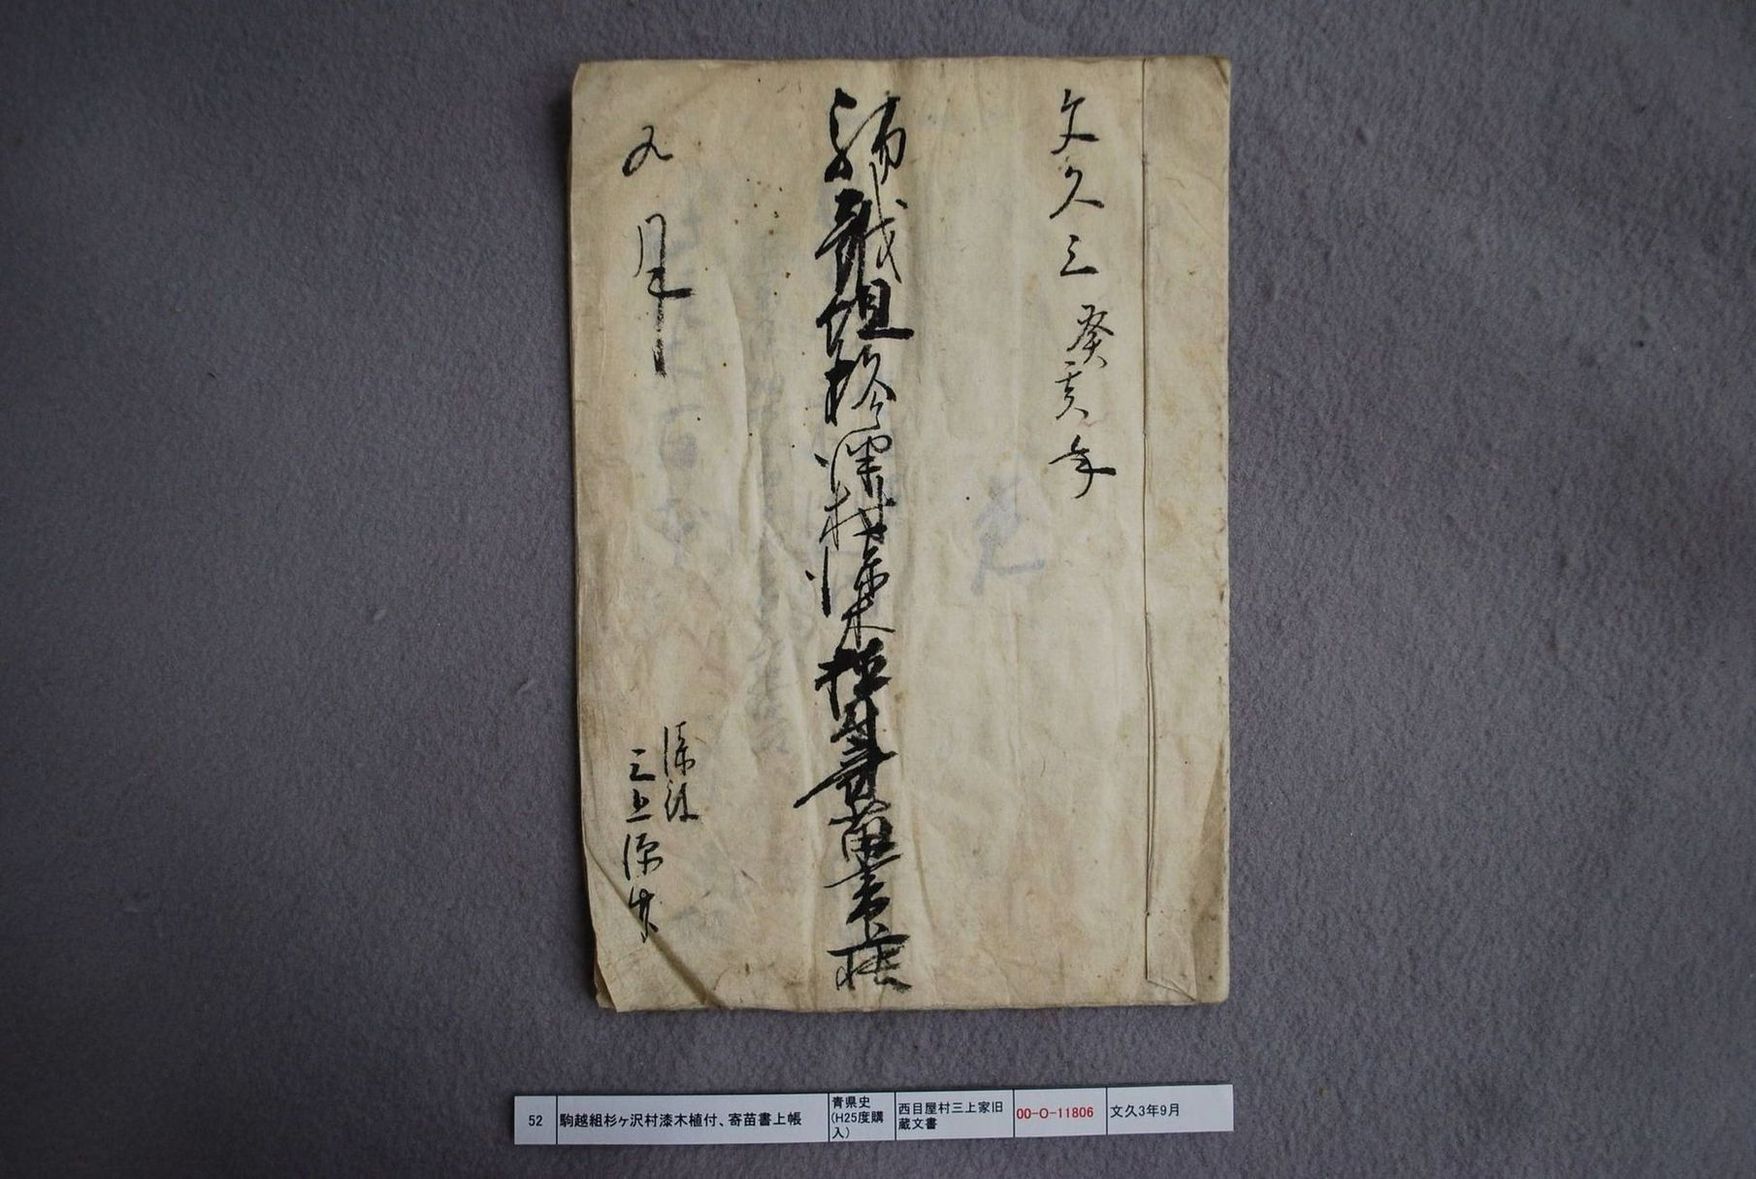 文久三癸亥年
駒越組杉ヶ澤村漆木植付寄苗書上帳
九月
漆役
三上源
52
駒越組杉ヶ沢村漆木植付、寄苗書上帳
青県史
(H25度購
入)
西目屋村三上家旧
蔵文書
00-O-11806
文久3年9月